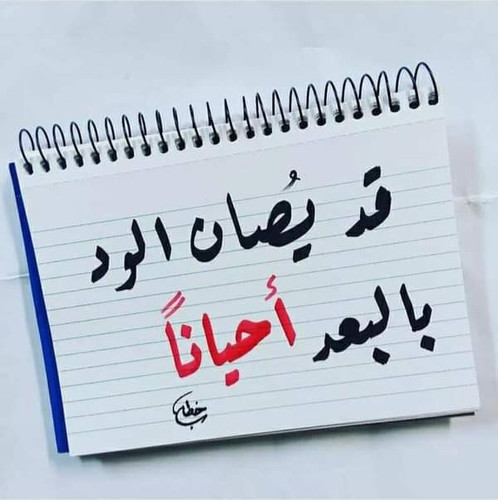 قد يُصان الود
بالبعد أحياناً